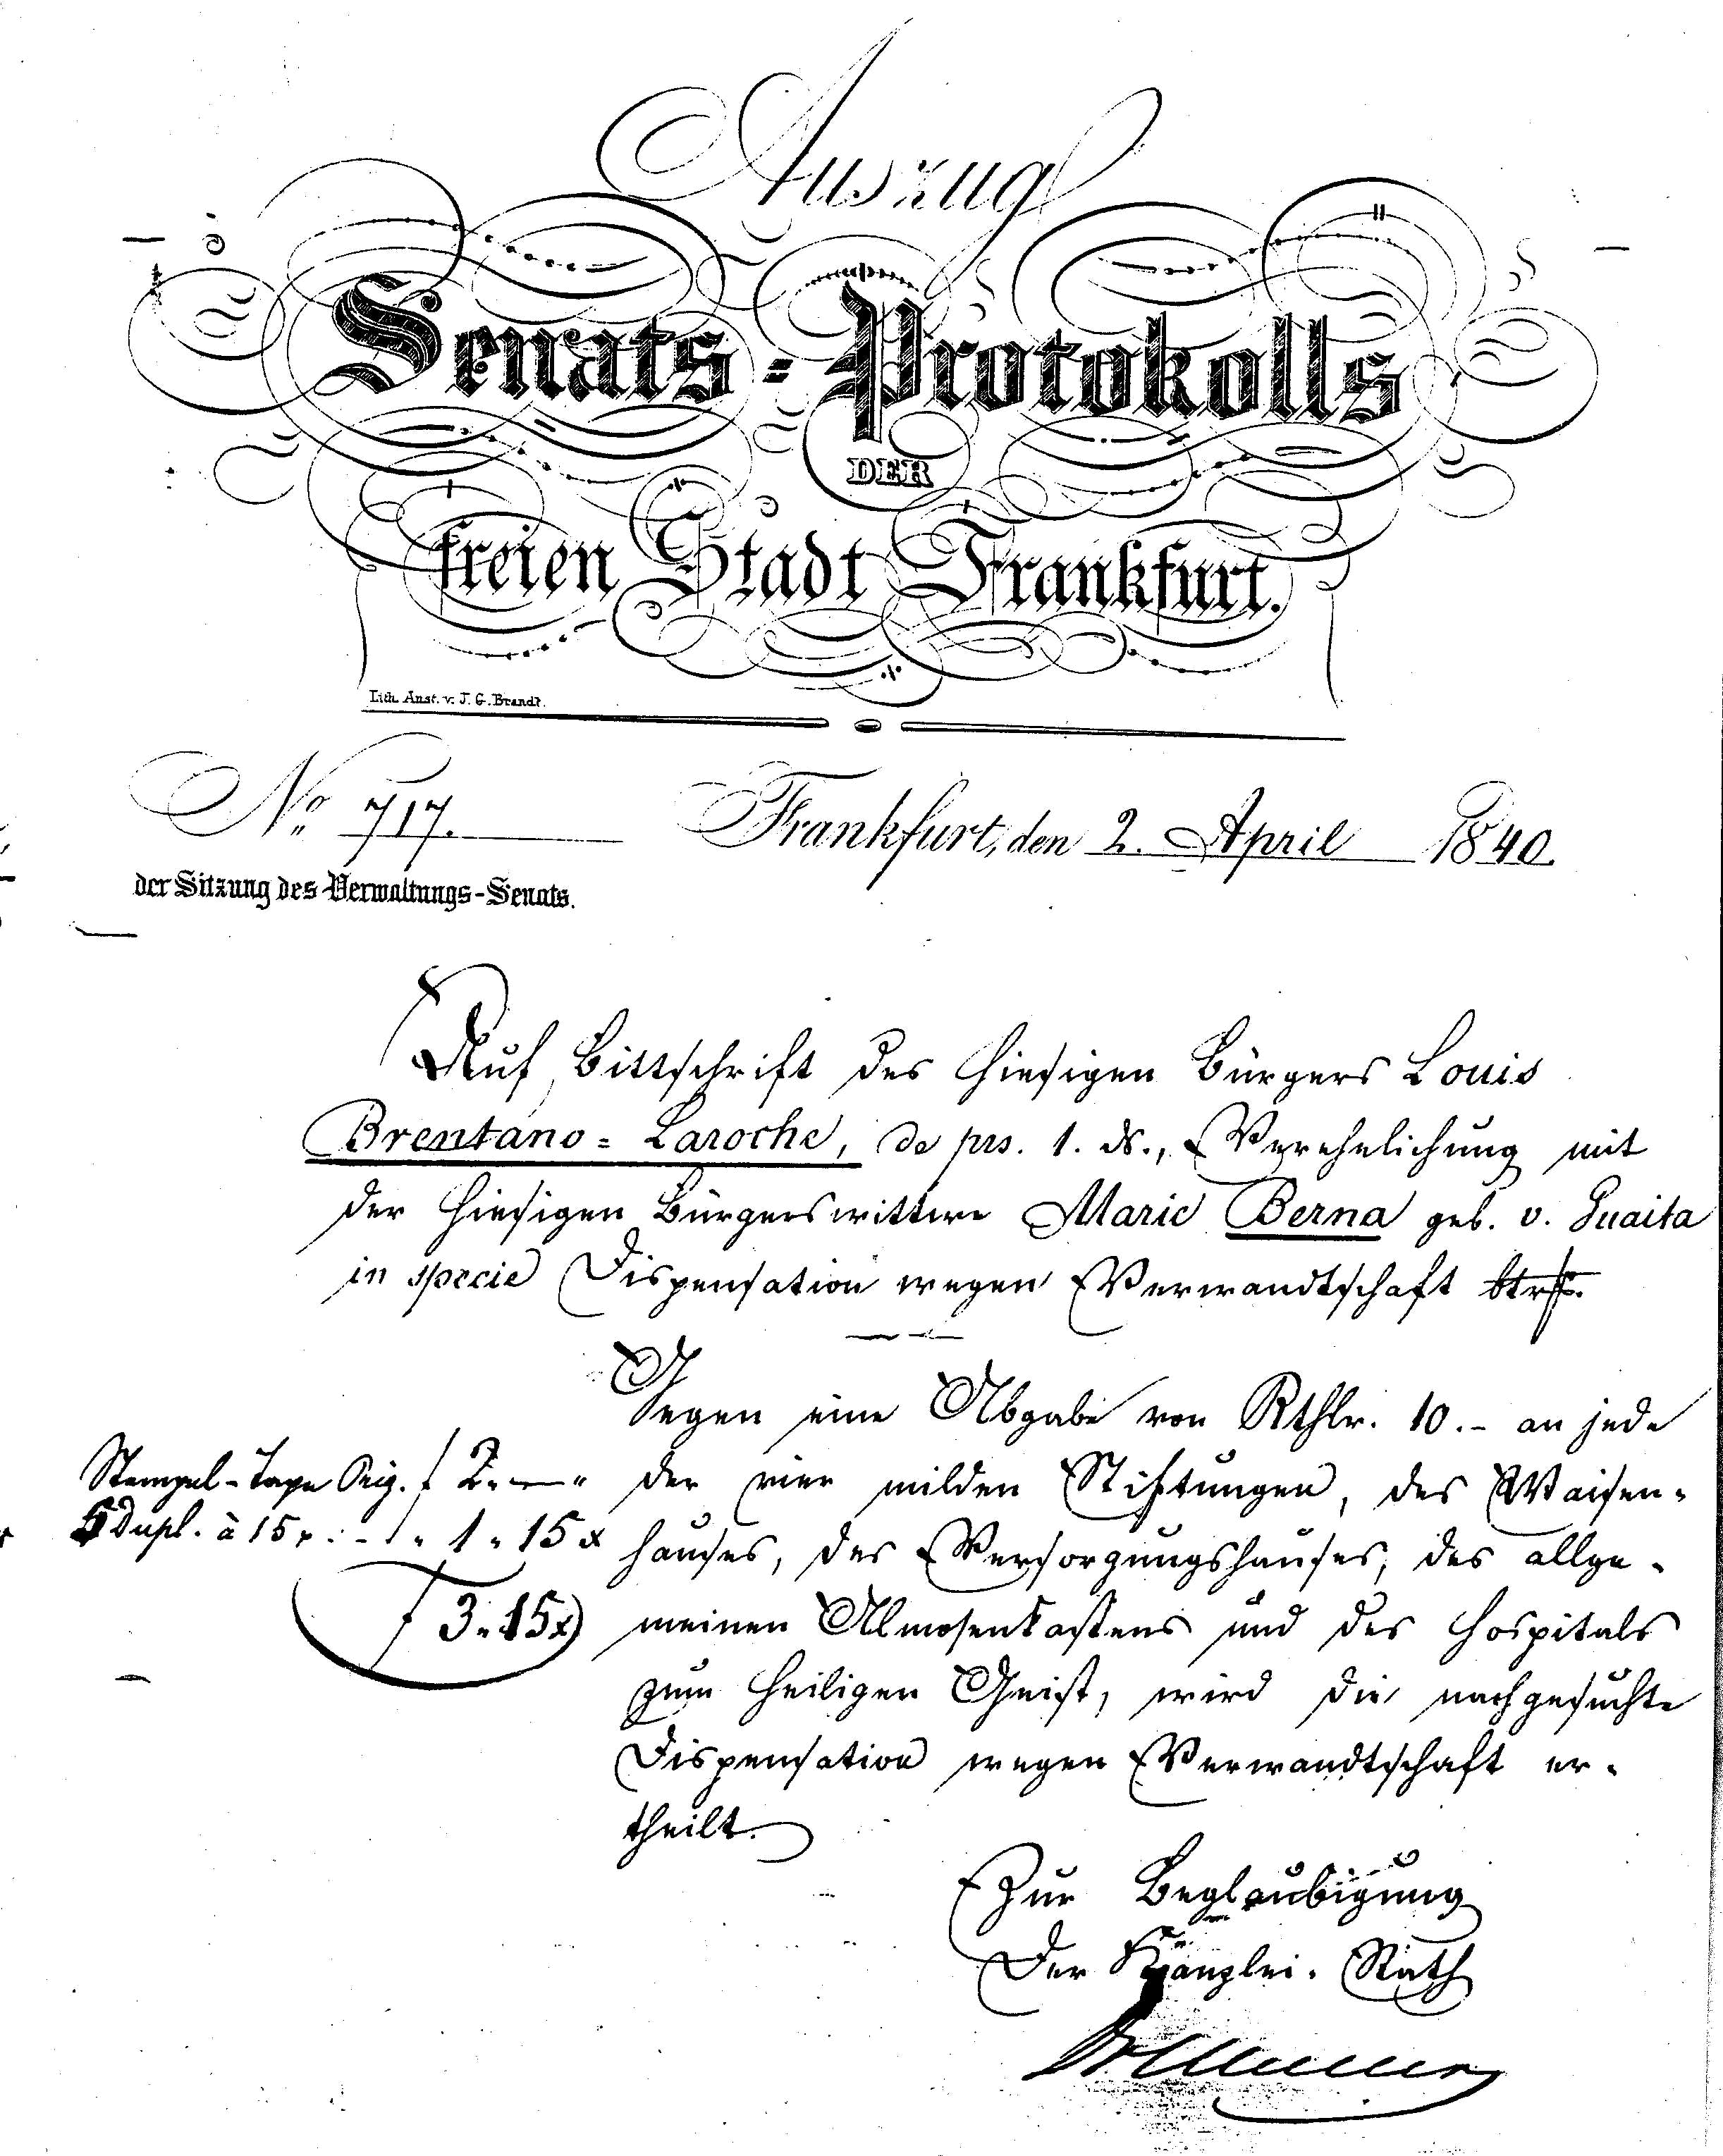 Auszug
Senats-Protokolls
DER
freien Stadt Frankfurt.
Lith. Anst. v. J. G. Brandt.
No 717.
Frankfurt, den 2. April 1840.
der Sitzung des Verwaltungs-Senats.
Auf Bittschrift des hiesigen Bürgers Louis
Brentano-Laroche, de prs. 1. ds., Verehelichung mit
der hiesigen Bürgerswittwe Marie Berna geb. v. Guaita
in specie Dispensation wegen Verwandtschaft btrf.
Gegen eine Abgabe von Rthlr. 10.- an jede
der vier milden Stiftungen, des Waisen-
hauses, des Versorgungshauses, des allge-
meinen Almosenkastens und des Hospitals
zum heiligen Geist, wird die nachgesuchte
Dispensation wegen Verwandtschaft er-
theilt.
Stempel-Taxe Orig. f 2. — "
5 Dupl. à 15 x: - " 1 " 15 x
f 3. 15 x
Zur Beglaubigung
Der Kanzlei-Rath